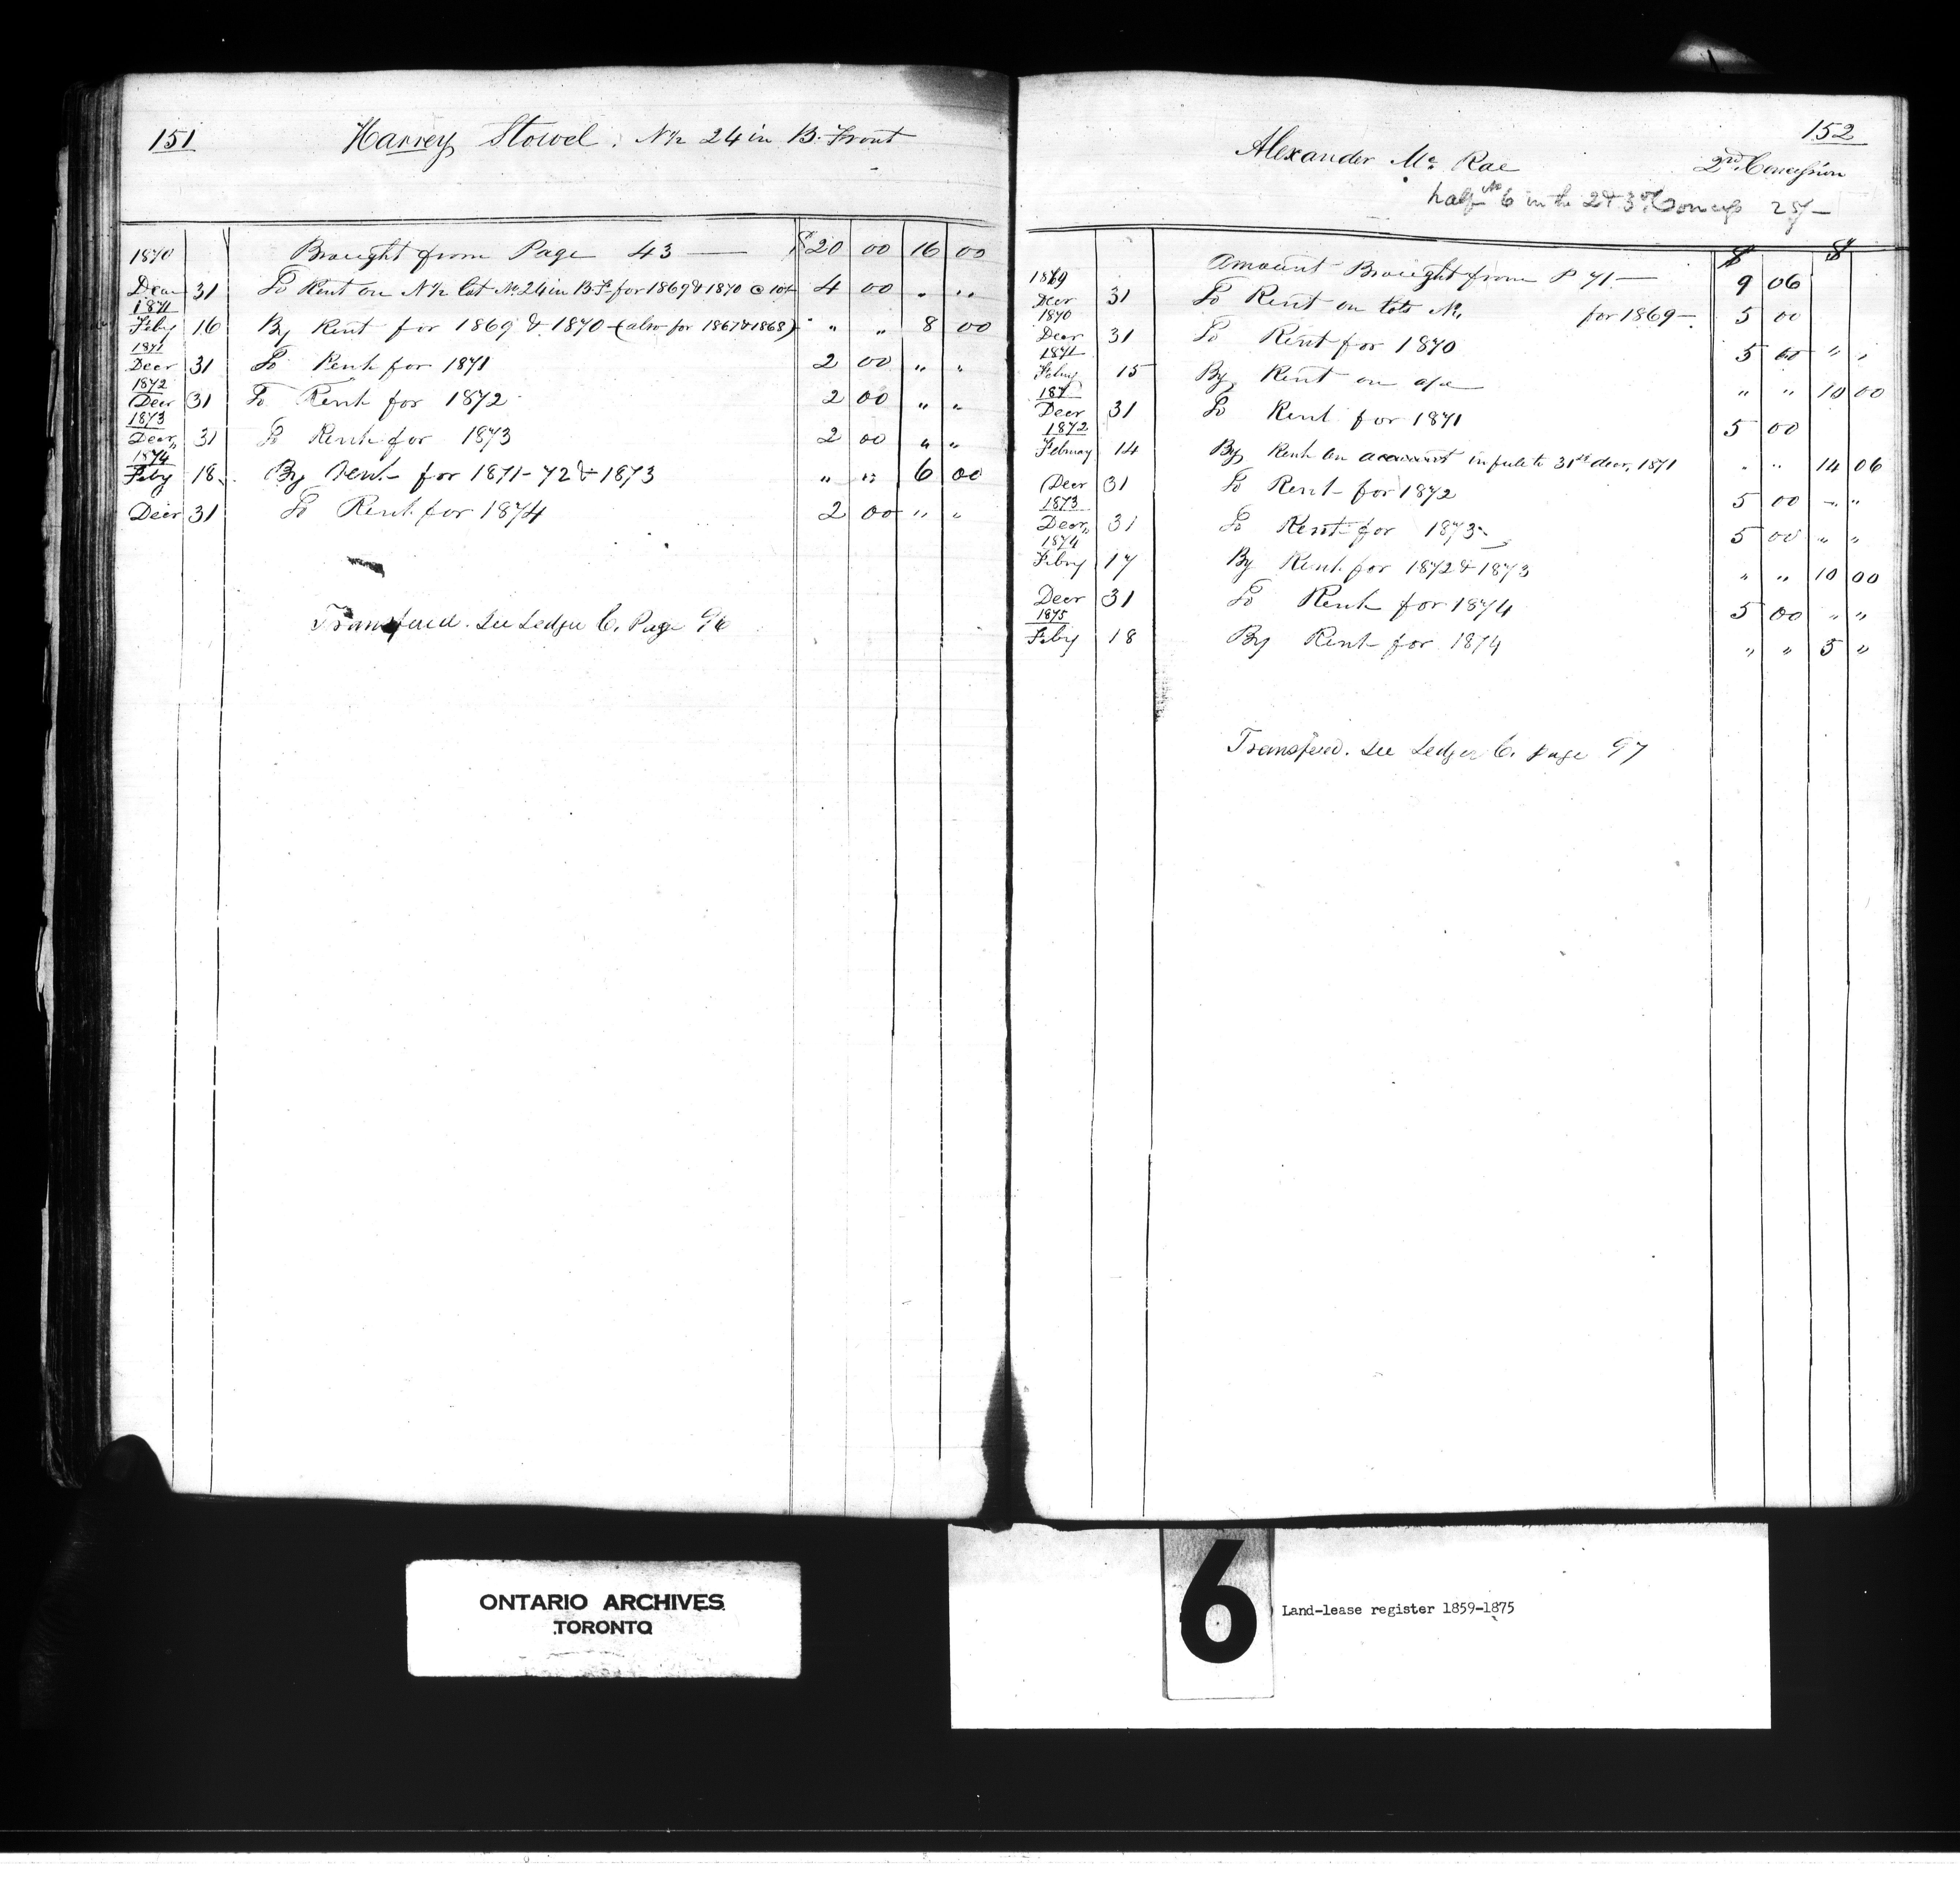 151
Harvey Stowel. N½ 24 in B. Front
1870 Brought from Page 43 — $ 20 00 16 00
Decr 31 To Rent on N½ lot No. 24 in B.F. for 1869 & 1870 @ 10/ 4 00 " "
1871
Feby 16 By Rent for 1869 & 1870 - (also for 1867 & 1868) " " 8 00
1871
Decr 31 To Rent for 1871 2 00 " "
1872
Decr 31 To Rent for 1872 2 00 " "
1873
Decr 31 To Rent for 1873 2 00 " "
1874
Feby 18 By Rent for 1871-72 & 1873 " " 6 00
Decr 31 To Rent for 1874 2 00 " "
Transfered. See Ledger C. Page 96
152
Alexander Mc Rae 2nd Concession
half No 6 in the 2d 3d Concess 25/-
$ $
Amount Brought from P 71 — 9 06
1869
Decr 31 To Rent on lots No. for 1869 — 5 00
1870
Decr 31 To Rent for 1870 5 00 " "
1871
Feby 15 By Rent on a/c " " 10 00
187
Decr 31 To Rent for 1871 5 00
1872
February 14 By Rent on account in full to 31st decr, 1871 " " 14 06
Decr 31 To Rent for 1872 5 00 " "
1873
Decr 31 To Rent for 1873 5 00 " "
1874
Febry 17 By Rent for 1872 & 1873 " " 10 00
Decr 31 To Rent for 1874 5 00 " "
1875
Feby 18 By Rent for 1874 " " 5 "
Transfered. See Ledger C. page 97
ONTARIO ARCHIVES
TORONTO
6
Land-lease register 1859-1875